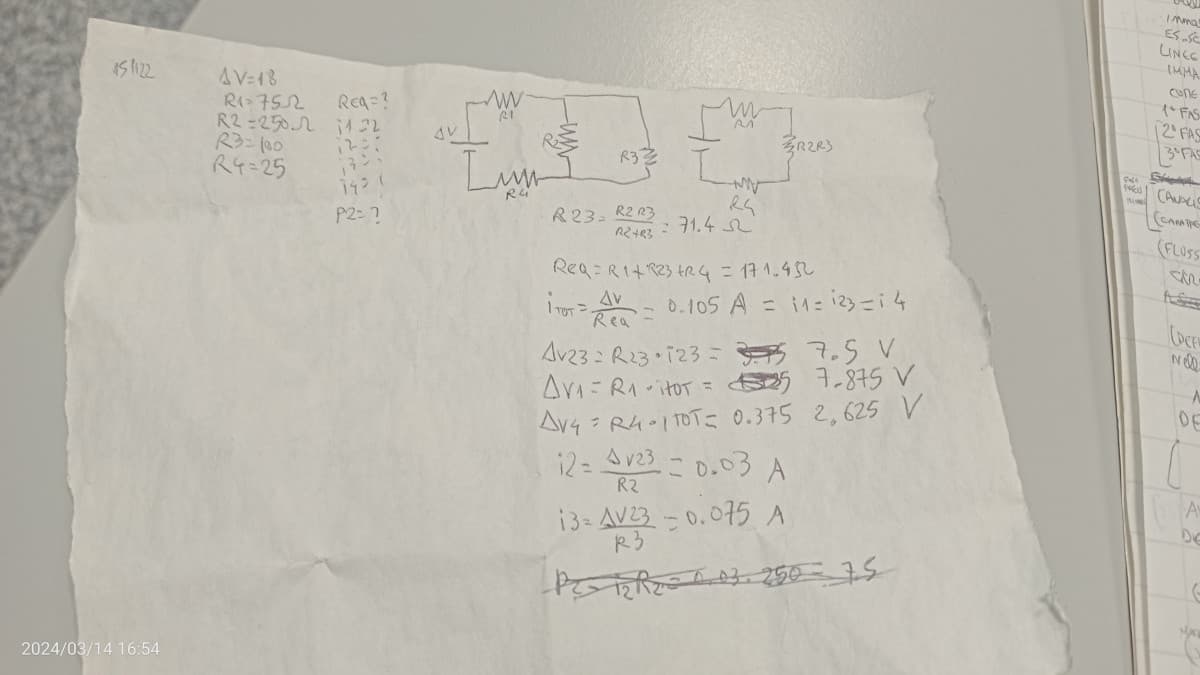 15/122
ΔV=18
R1=75Ω
R2=250Ω
R3=100
R4=25
Req=?
i1=?
i2=?
i3=?
i4=?
P2=?
ΔV
R1
R2
R3
R4
R1
R2R3
R4
R23= R2R3/R2+R3 = 71.4 Ω
Req=R1+R23+R4 = 171.4Ω
iTOT= ΔV/Req = 0.105 A = i1=i23=i4
ΔV23=R23·i23= 7.5 V
ΔV1=R1·iTOT= 7.875 V
ΔV4=R4·iTOT= 0.375 2,625 V
i2= ΔV23/R2 =0.03 A
i3= ΔV23/R3 =0.075 A
P2= i2R2=0.03.250=7.5
ES.
LINEE
IMMA
COME
1ª FAS
2ª FAS
3ª FAS
(FLUSS
DE
2024/03/14 16:54